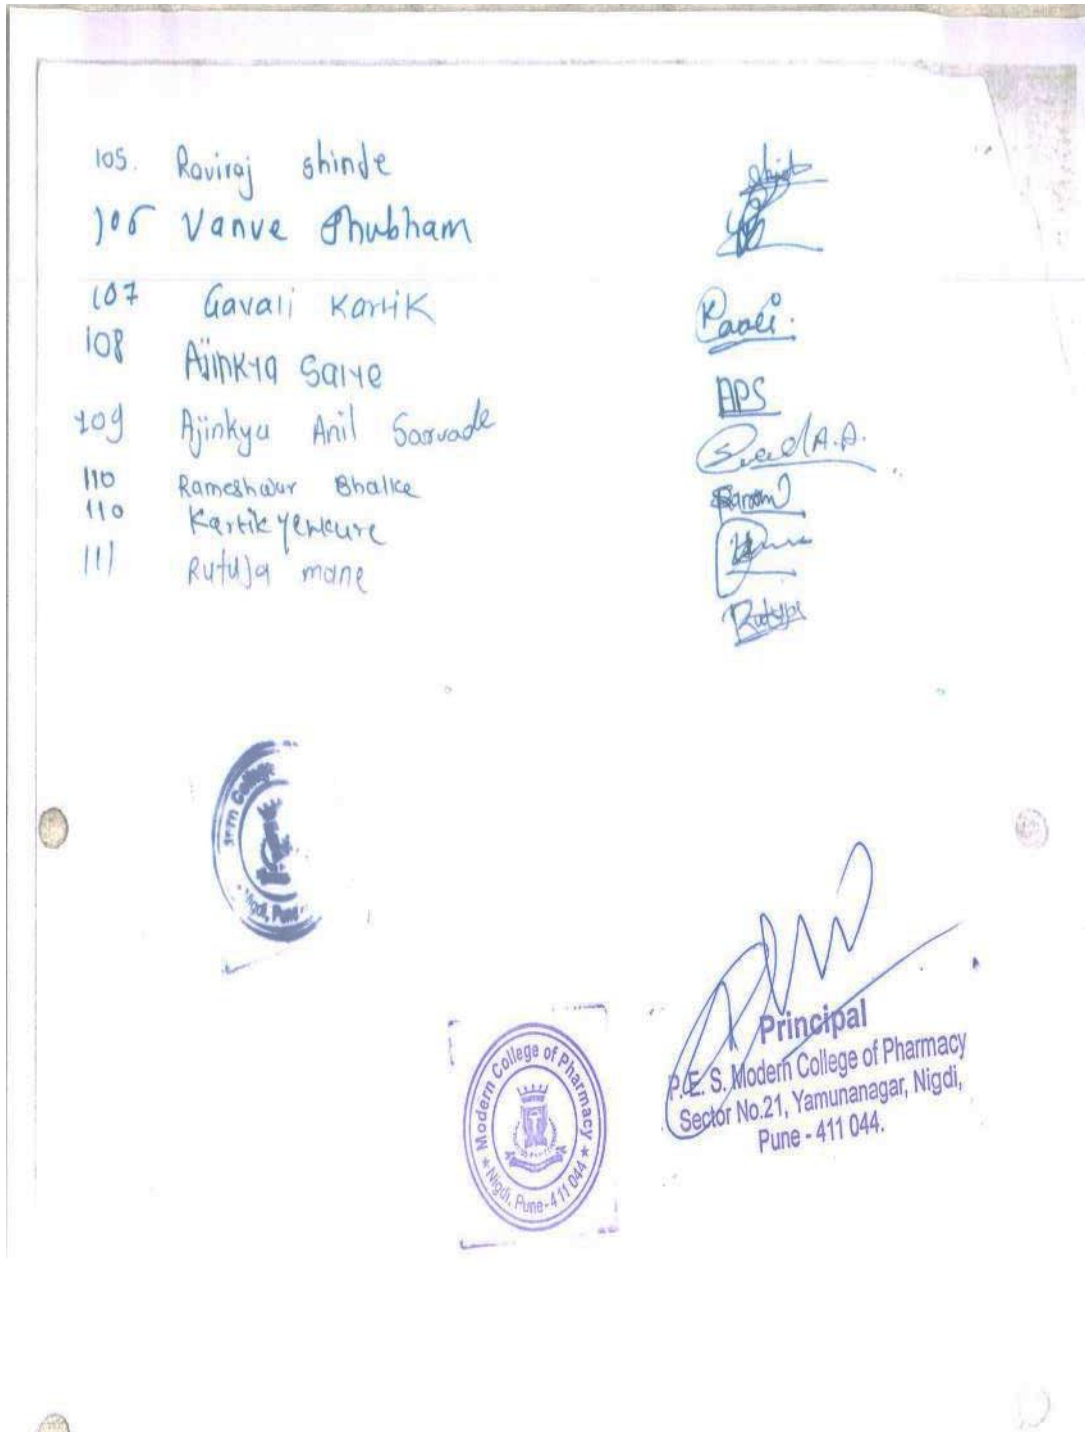 105. Raviraj shinde
106 Vanve Shubham
107 Gavali Kartik
108 Ajinkya Salve
109 Ajinkya Anil Sarvade A.A.
APS
110 Rameshwar Bhalke
110 Kartik Yenkure
111 Rutuja mane
College
Nigdi, Pune
Modern College of Pharmacy
Nigdi, Pune-411 044
Principal
P. E. S. Modern College of Pharmacy
Sector No.21, Yamunanagar, Nigdi,
Pune - 411 044.